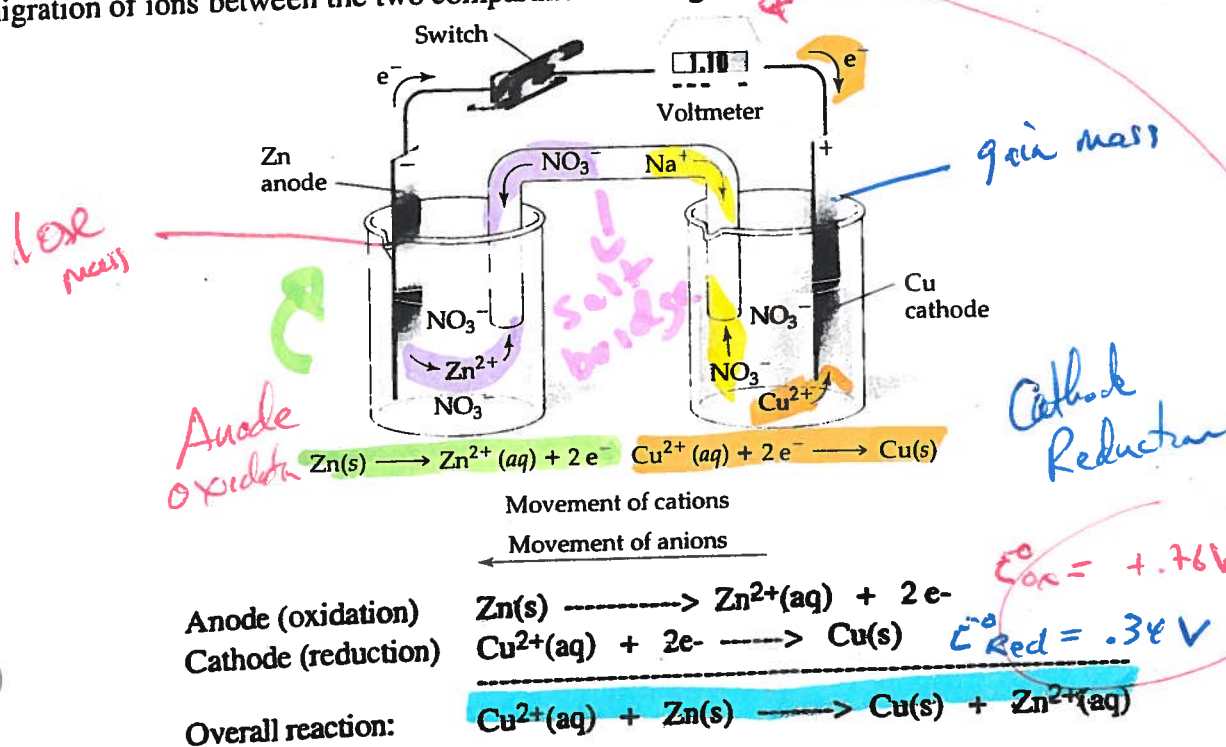 igration of ions between the two
Switch
e⁻
1.10
e⁻
Voltmeter
Zn
anode
−
NO₃⁻
Na⁺
+
gain mass
lose
mass
salt
bridge
NO₃⁻
NO₃⁻
Cu
cathode
Zn²⁺
NO₃⁻
NO₃⁻
Cu²⁺
Anode
Cathode
Reduction
Zn(s) ⟶ Zn²⁺ (aq) + 2 e⁻
Cu²⁺ (aq) + 2 e⁻ ⟶ Cu(s)
Movement of cations
Movement of anions
Anode (oxidation) Zn(s) ----------> Zn²⁺(aq) + 2 e-
E°ox = +.76V
Cathode (reduction) Cu²⁺(aq) + 2e- ------> Cu(s)
E°Red = .34 V
Overall reaction: Cu²⁺(aq) + Zn(s) ------> Cu(s) + Zn²⁺(aq)